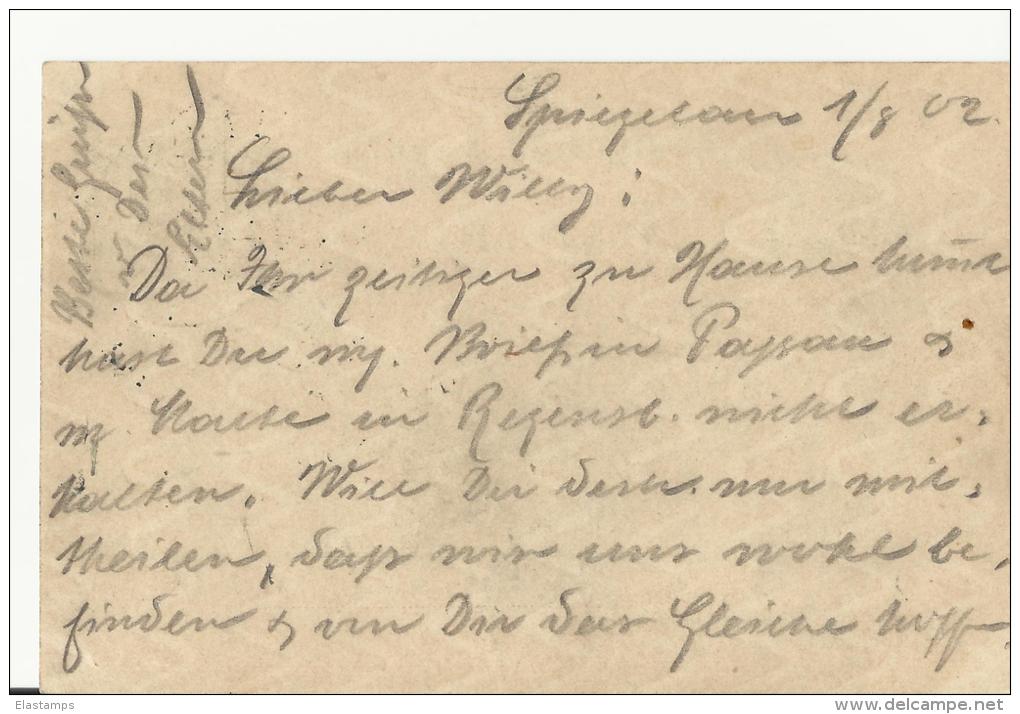 Spiegelau 1/8 02.
Lieber Willy!
Da Ihr zeitiger zu Hause kom̅t
hast Du my. Brief in Passau &
m Karte in Regensb. nicht er-
halten. Will Dir desh. nur mit-
theilen, daß wir uns wohl be-
finden & von Dir das Gleiche hoffen
Beste Grüße
Dein
Eltern
Elastamps
www.delcampe.net